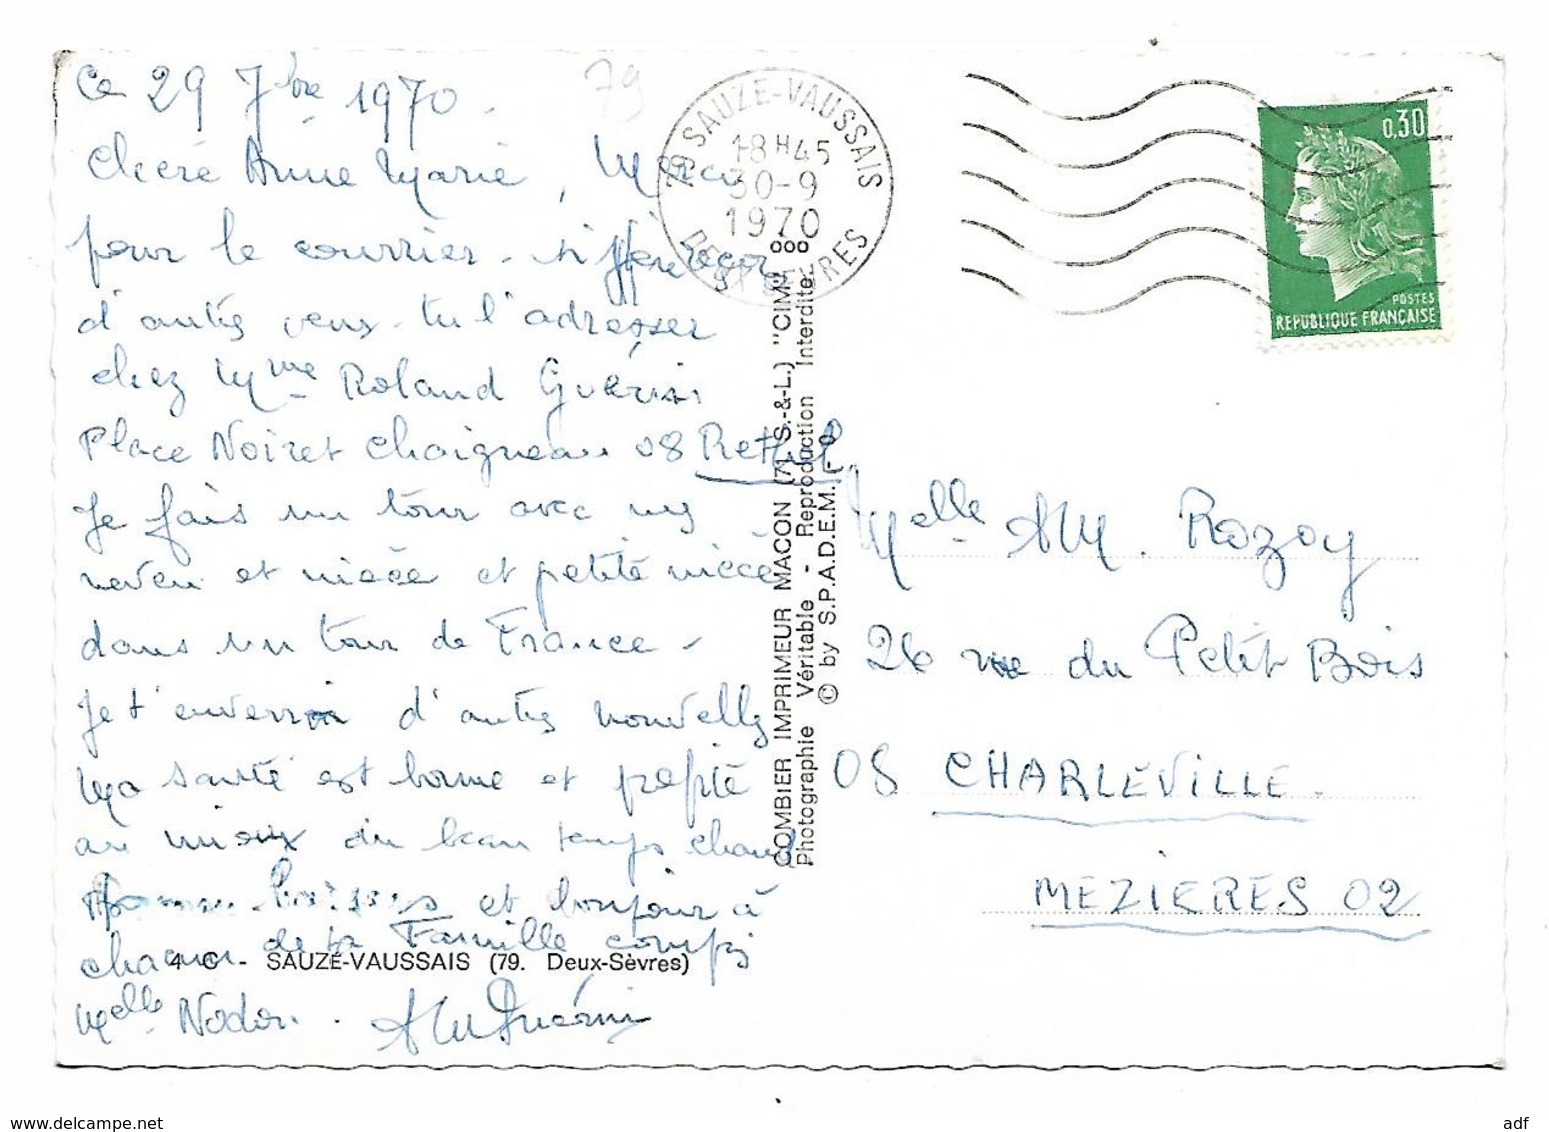 Ce 29 7bre 1970.
79
Chère Anne Marie, Merci
pour le courrier. si
d'autres veux-tu l'adresser
chez Mme Roland Guérin
Place Noiret Chaigneau 08 Rethel
Je fais un tour avec mes
neveu et nièce et petite nièce
dans un tour de France -
Je t'enverrai d'autres nouvelles
Ma santé est bonne et profite
au mieux du beau temps chaud
Bonnes baisers et bonjour à
chacun de ta Famille compris
Melle Nodon. AM Guérin
4 C - SAUZÉ-VAUSSAIS (79. Deux-Sèvres)
79 SAUZE-VAUSSAIS
18H45
30-9
1970
DEUX SEVRES
COMBIER IMPRIMEUR MACON (71 S.-&-L.) "CIM"
Photographie Véritable - Reproduction Interdite
© by S.P.A.D.E.M.
0,30
POSTES
REPUBLIQUE FRANÇAISE
Melle AM. Rozoy
26 rue du Petit Bois
08 CHARLEVILLE.
MEZIERES 02
www.delcampe.net
adf